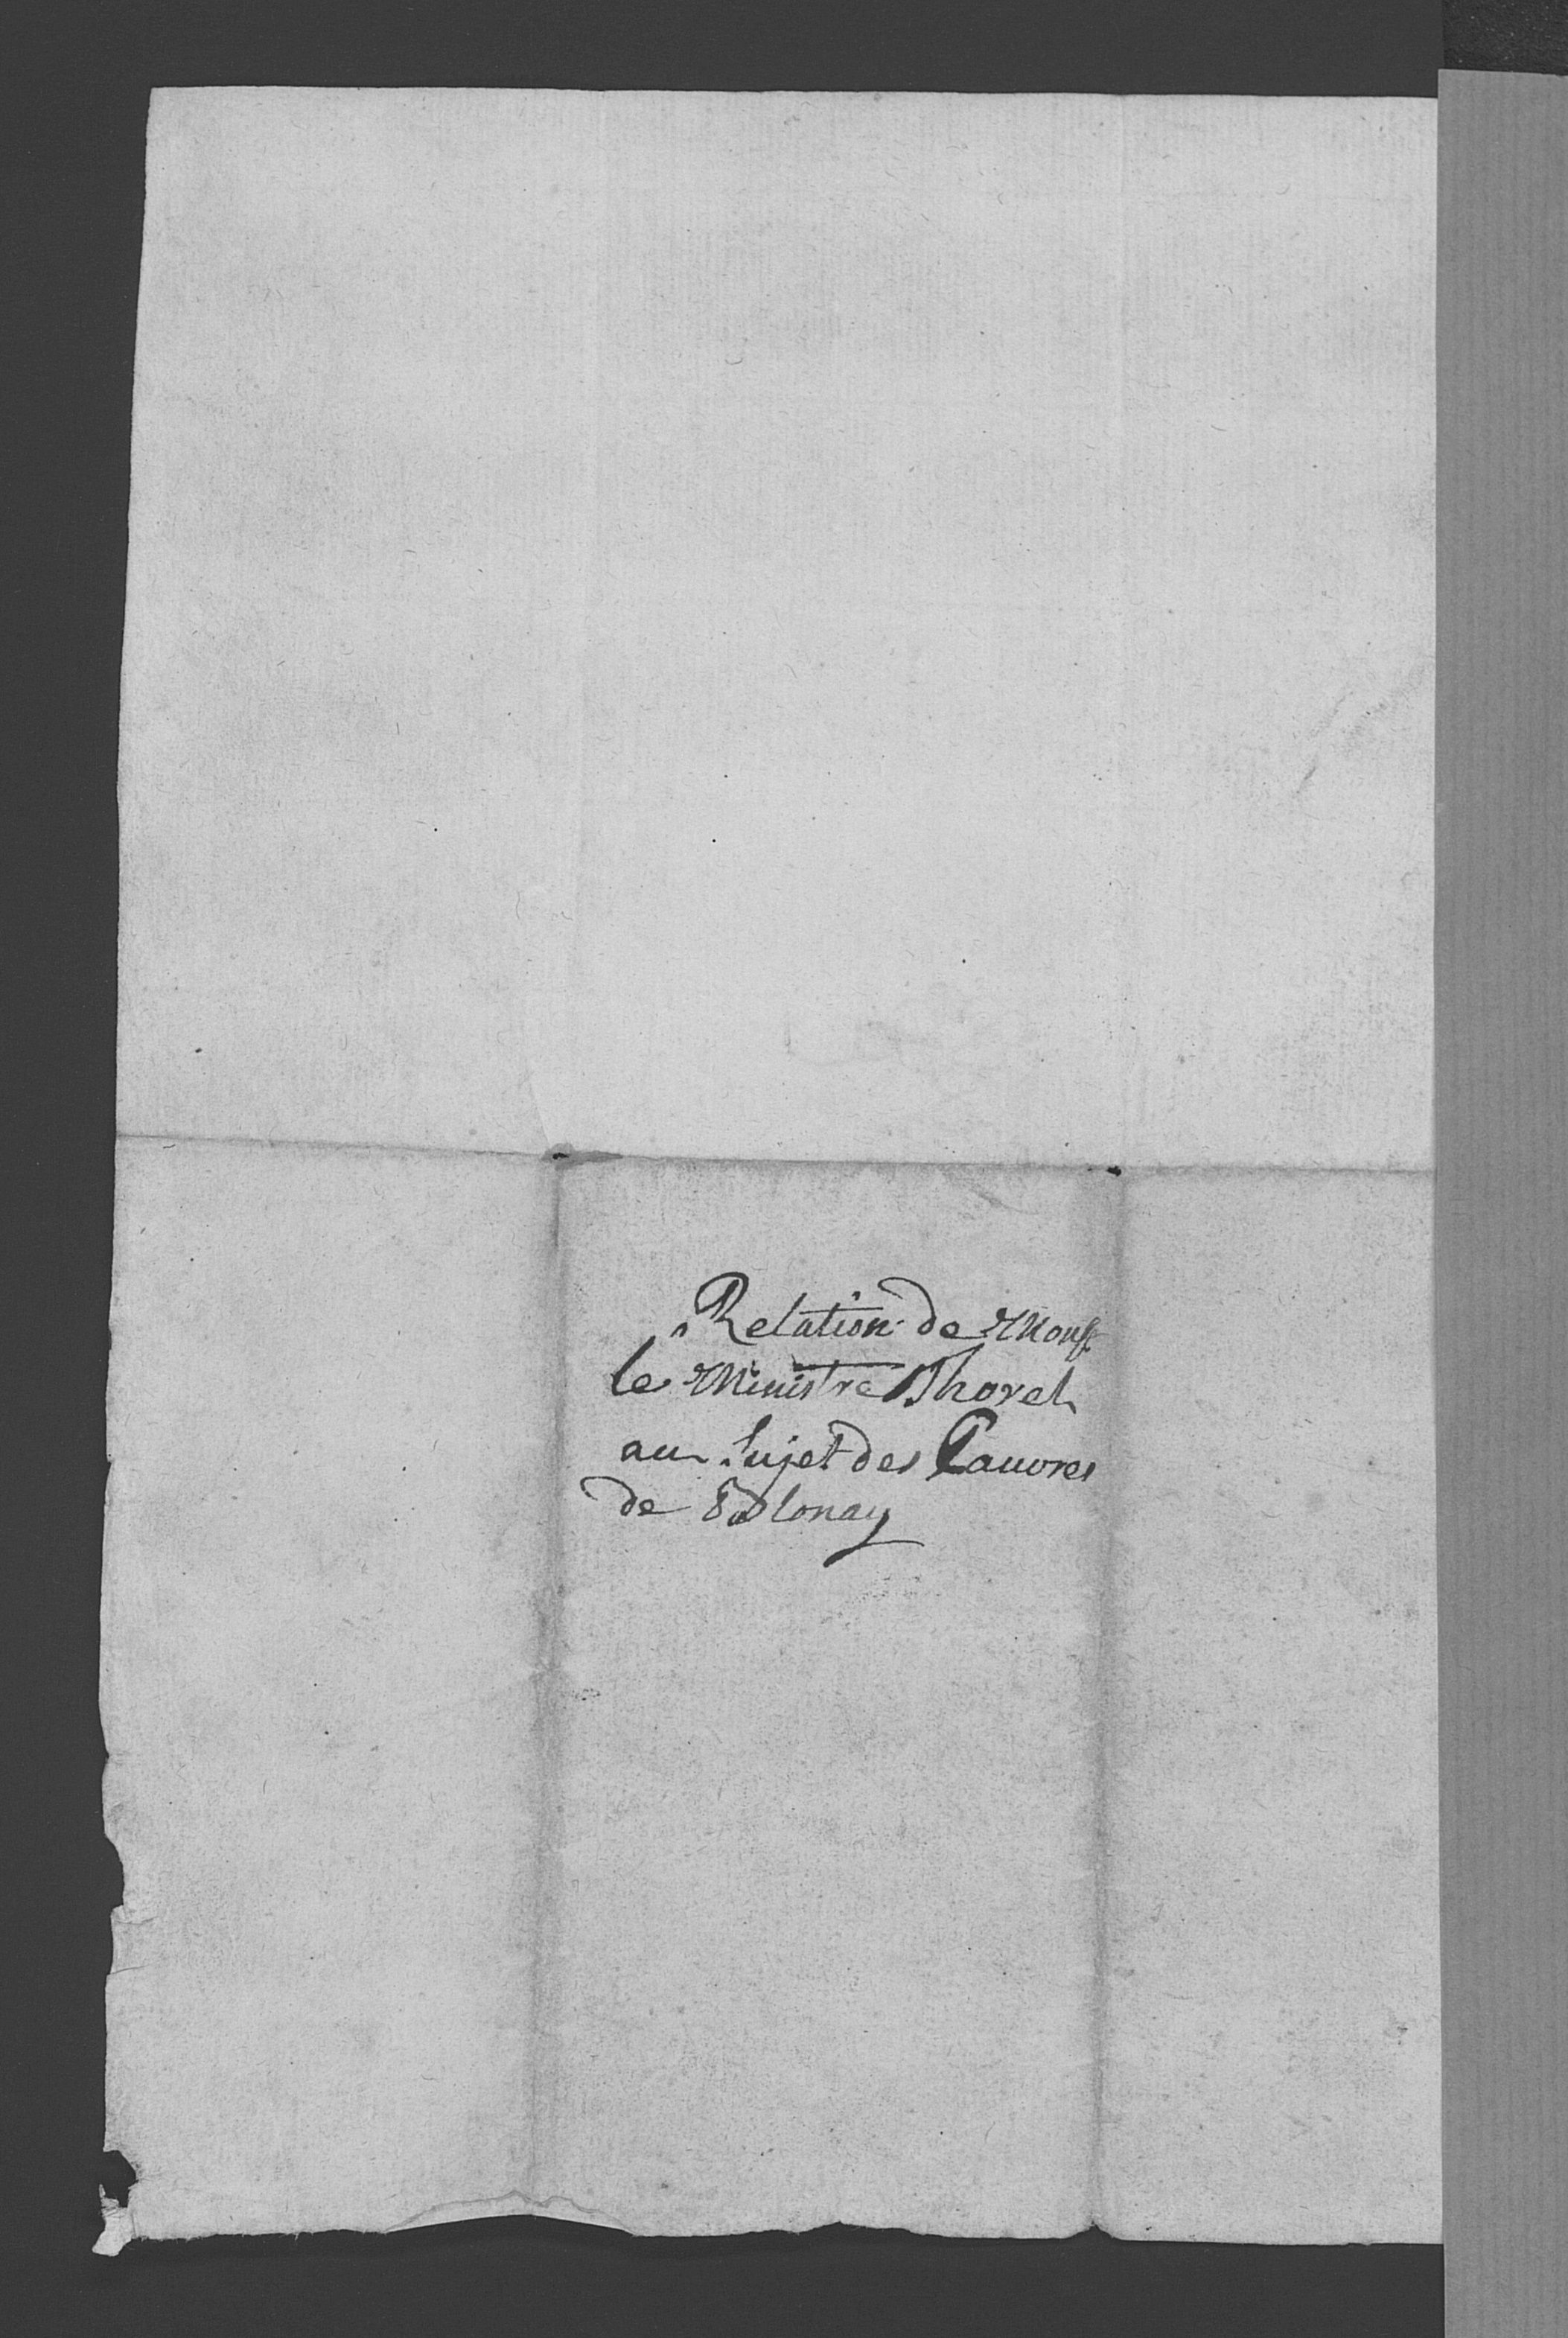 Relation de Monsr
le Ministre Thorel
au Sujet des Pauvres
de